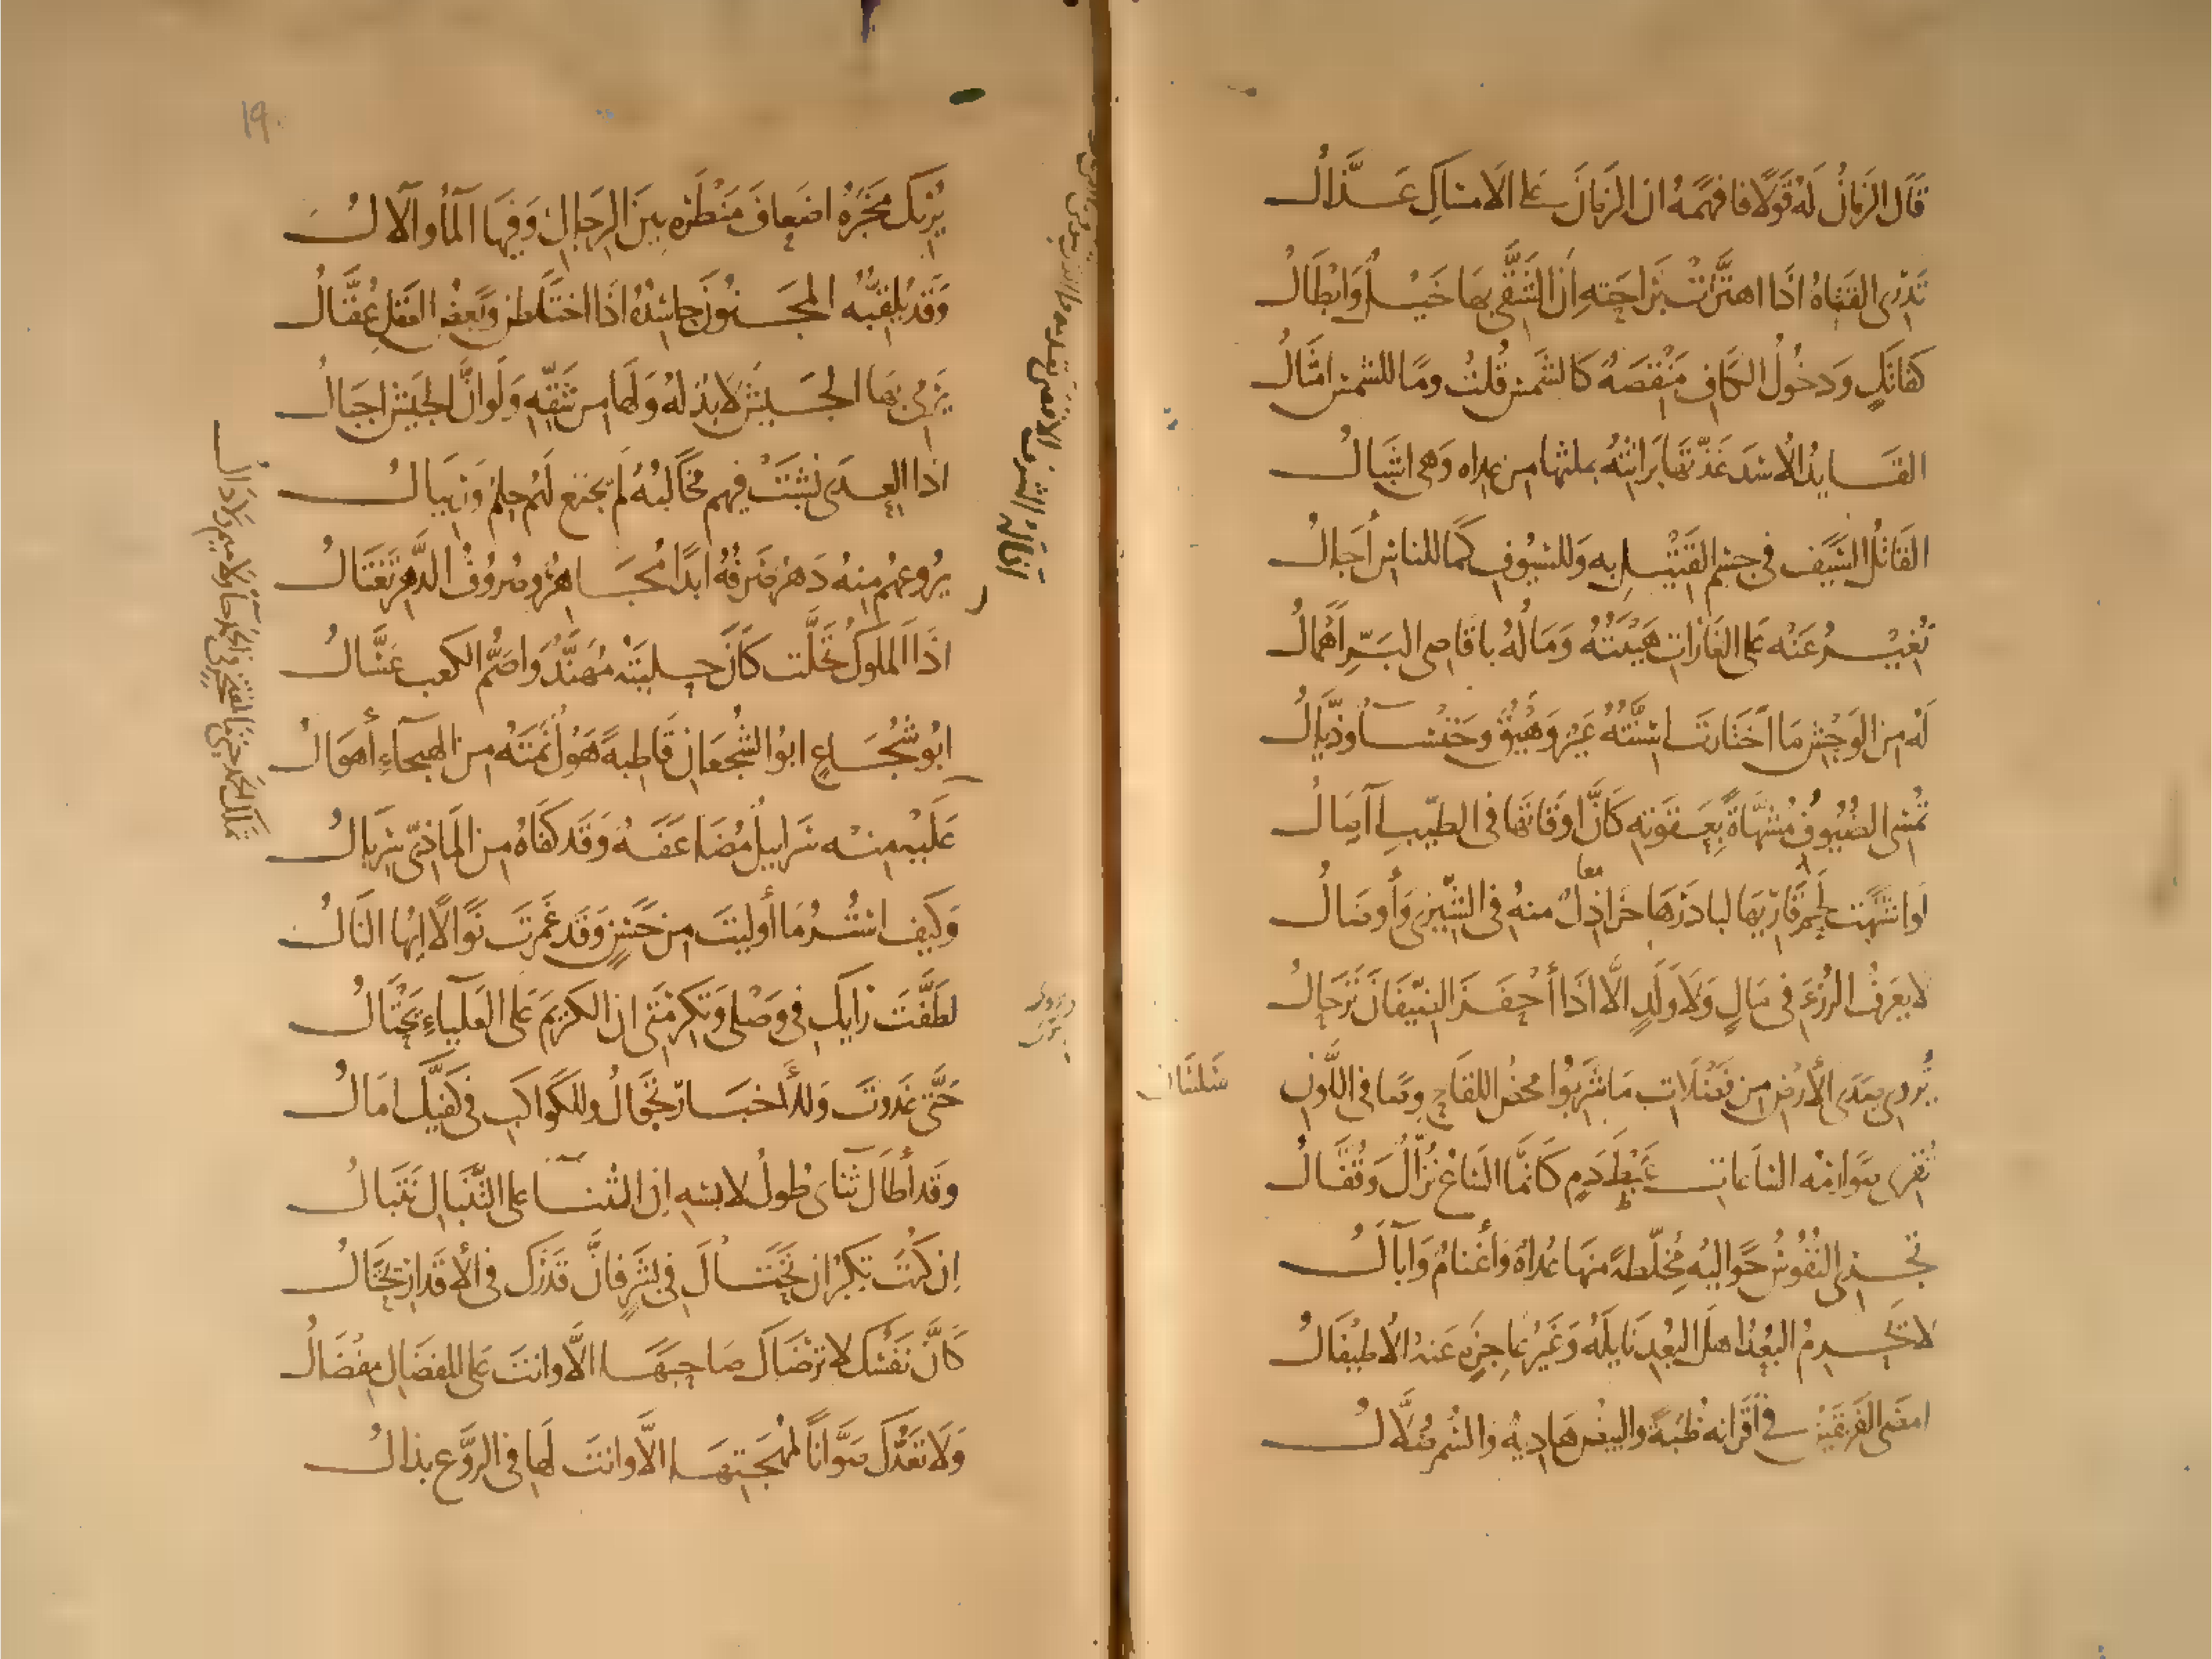 قَالَ الزَمَانُ لَهُ قَولًا فافهَمَهُ ان الزَمَانَ على الامسَاكِ عَذَّالُ
تَدْرِى القَنَاةُ اذَا اهتَزَّت بِرَاحَتِهِ اَنَّ الشَّقِىَّ بها خَيْلٌ وَابْطَالُ
كفاتكٍ وَدخُولُ الكَافِ مَنْقَصَةٌ كالشَمسِ قُلتُ ومَا للشمسِ امثَالُ
القَايدُ الأُسْدَ غَذَّتهَا بَرَاثنُهُ بمثلهَا من عِداه وَهى اشبَالُ
القَاتلُ السَّيفَ فى جسْمِ القَتِيلِ بهِ وَللسُيُوفِ كمَا للناسِ اُجَالُ
تُغِيْرُ عَنْه عَلى الغَارَاتِ هَيْبَتُهُ وَمَالُهُ باقَاصِى البَرِّ أَهْمَالُ
لَهُ مِنَ الوَحْشِ مَا اختَارَت اسِنَّتُهُ عَيْرٌ وَهَيْقٌ وَخَنْسَاءُ وَذَيَّالُ
تُمْسِى الضُيُوفُ مُشَهَّاةً بِعَقْوَتِهِ كَانَّ اوقَاتَهَا فى الطِيْبِ اآصَالُ
لَو اشتَهَت لَحْمَ قَارِيْهَا لبادَرَهَا خَرَاذِلٌ منهُ فى الشِّيزَى وَأَوصَالُ
معا
لا يَعرِفُ الرُزْءَ فى مَالٍ وَلَا وَلَدٍ الَّا اذَا أَحْفَزَ الضِّيفَانَ تَرْحَالُ
يُروِى صَدَى الأَرْضِ مِن فَضَلَاتِ مَا شَرِبُوا محضُ اللقَاحِ وصَافى اللَّونِ
سَلسَالُ
تَقْرِى صَوَارِمُه السَاعَاتِ عَبْطَ دَمٍ كَانَّمَا السَّاعُ نُزَّالٌ وَقُفَّالُ
تَجْرِى النُفُوسُ حَوَاليهِ مُخَلَّطةً منهَا عُدَاةٌ وَأَغنَامٌ وَآبَالُ
لا يَحْرِمُ البُعْدُ اهلَ البُعدِ نَايلَهُ وَغَيْرُ عَاجِزَةٍ عَنهُ الأُطَيْفَالُ
امضَى الفَرِيقَيْنِ فى اَقْرَانِه ظُبَةً والبِيْضُ هَادِيَةٌ وَالسُمْرُ ضُلَّالُ
١٩
يُرِيْكَ مَخْبَرُهُ اضعَافَ مَنْظَرِهِ بينَ الرِجَالِ وَفِيهَا المَاُ وَالآلُ
وَقَد يُلَقِّبُه المَجنُونَ حَاسِدُهُ اذَا اختَلَطنَ وَبَعضُ العَقلِ عُقَّالُ
يَرْمِى بهَا الجَيْشَ لَا بُدٌ لهُ وَلَهَا مِن شَقِّهِ وَلَو انَّ الجَيْشَ اجبَالُ
اذَا العِدَى نَشَبَتْ فيهِم مخَالبُهُ لَم يَجتَمِع لَهُم حِلمٌ وَرِيبَالُ
يَرُوعهُم مِنهُ دَهرٌ صَرفُهُ ابَدًا مُجَاهِرٌ وصُروُفُ الدَّهرِ تَغْتَالُ
اذَا المُلُوكُ تَحَلَّت كَانَ حِليَتَهُ مُهَنَّدٌ وَاصَمُّ الكَعبِ عَسَّالُ
ابُو شُجَاعٍ ابُوا الشُجعَانِ قَاطِبةً هَولٌ نَمَتْهُ مِن الهيجَاءِ أَهوَالُ
تملَّكَ الحَمدَ حتى مَا لمفتَخرٍ فى الحَمدِ حَآءٌ وَلا مِيمٌ وَلَا دَالُ
عَلَيْهِ مِنْه سَرَابيلٌ مُضَاعَفَةٌ وَقَد كفَاهُ مِنَ المَاذِىِّ سِربَالُ
وَكَيْفَ استُرُ مَا أَولَيْتَ مِن حَسَنٍ وَقَد غَمَرتَ نَوَالًا ايُّهَا النَالُ
لَطَّفْتَ رَايَكَ فى وَصْلِى وَتَكرِمَتِى ان الكَرِيْمَ عَلَى العَليَاءِ يَحْتَالُ
حَتَّى غَدَوتَ وَللأَخبَارِ تَجْوَالٌ وللكَوَاكبِ فى كفَّيكَ امَالُ
وقَد أَطَالَ ثَنَاى طُولُ لابسِهِ اِنَّ الثنَا على التِّنبَالِ تِنبَالُ
اِن كنتَ تَكبُرُ ان تَختَالَ فى بَشَرٍ فانَّ قَدْرَكَ فى الأقدَارِ يَختَالُ
كَانَّ نَفْسَكَ لا تَرْضَاكَ صَاحِبَهَا الَّا وانتَ عَلى المفضَالِ مِفْضَالُ
وَلَا تَعُدُّكَ صَوَّانًا لمُهجَتِهَا الَّا وانتَ لَها فى الرَوعِ بذالُ